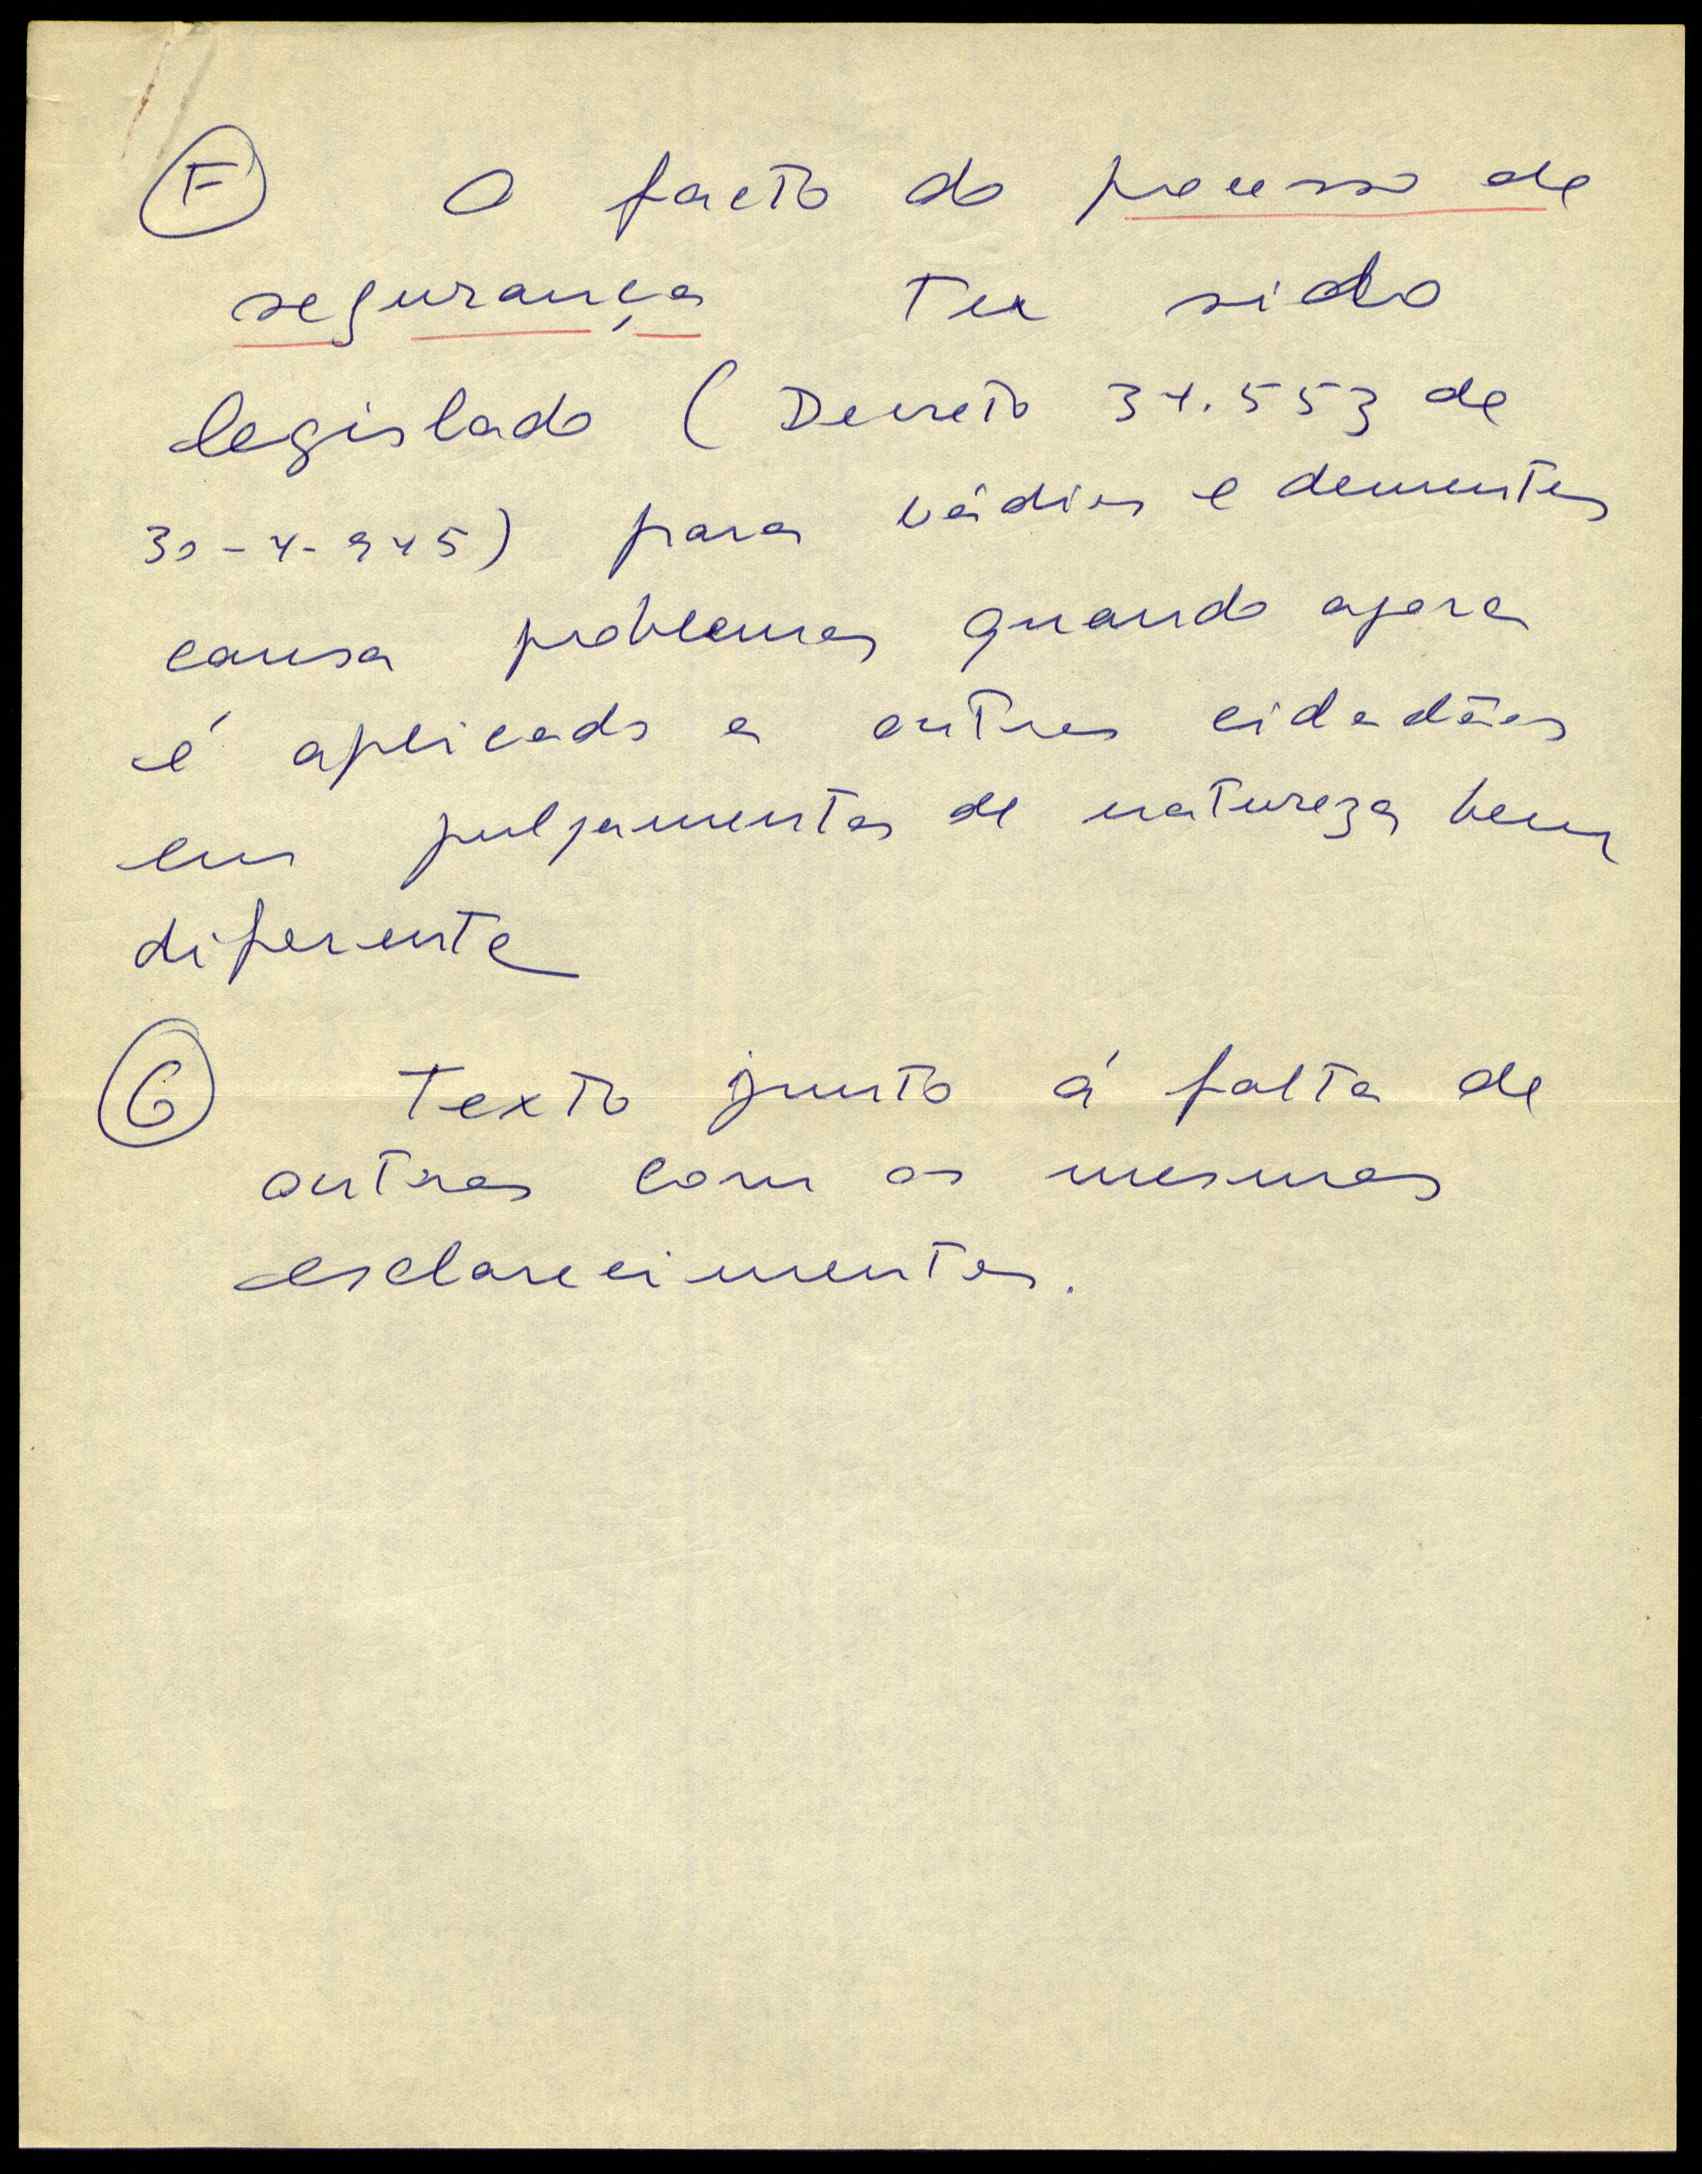 F O facto do processo de
segurança ter sido
legislado (Decreto 34.553 de
30-4-945) para vádios e dementes
causa problemas quando agora
é aplicado a outros cidadãos
em julgamentos de natureza bem
diferente
G Texto junto á falta de
outros com os mesmos
esclarecimentos.